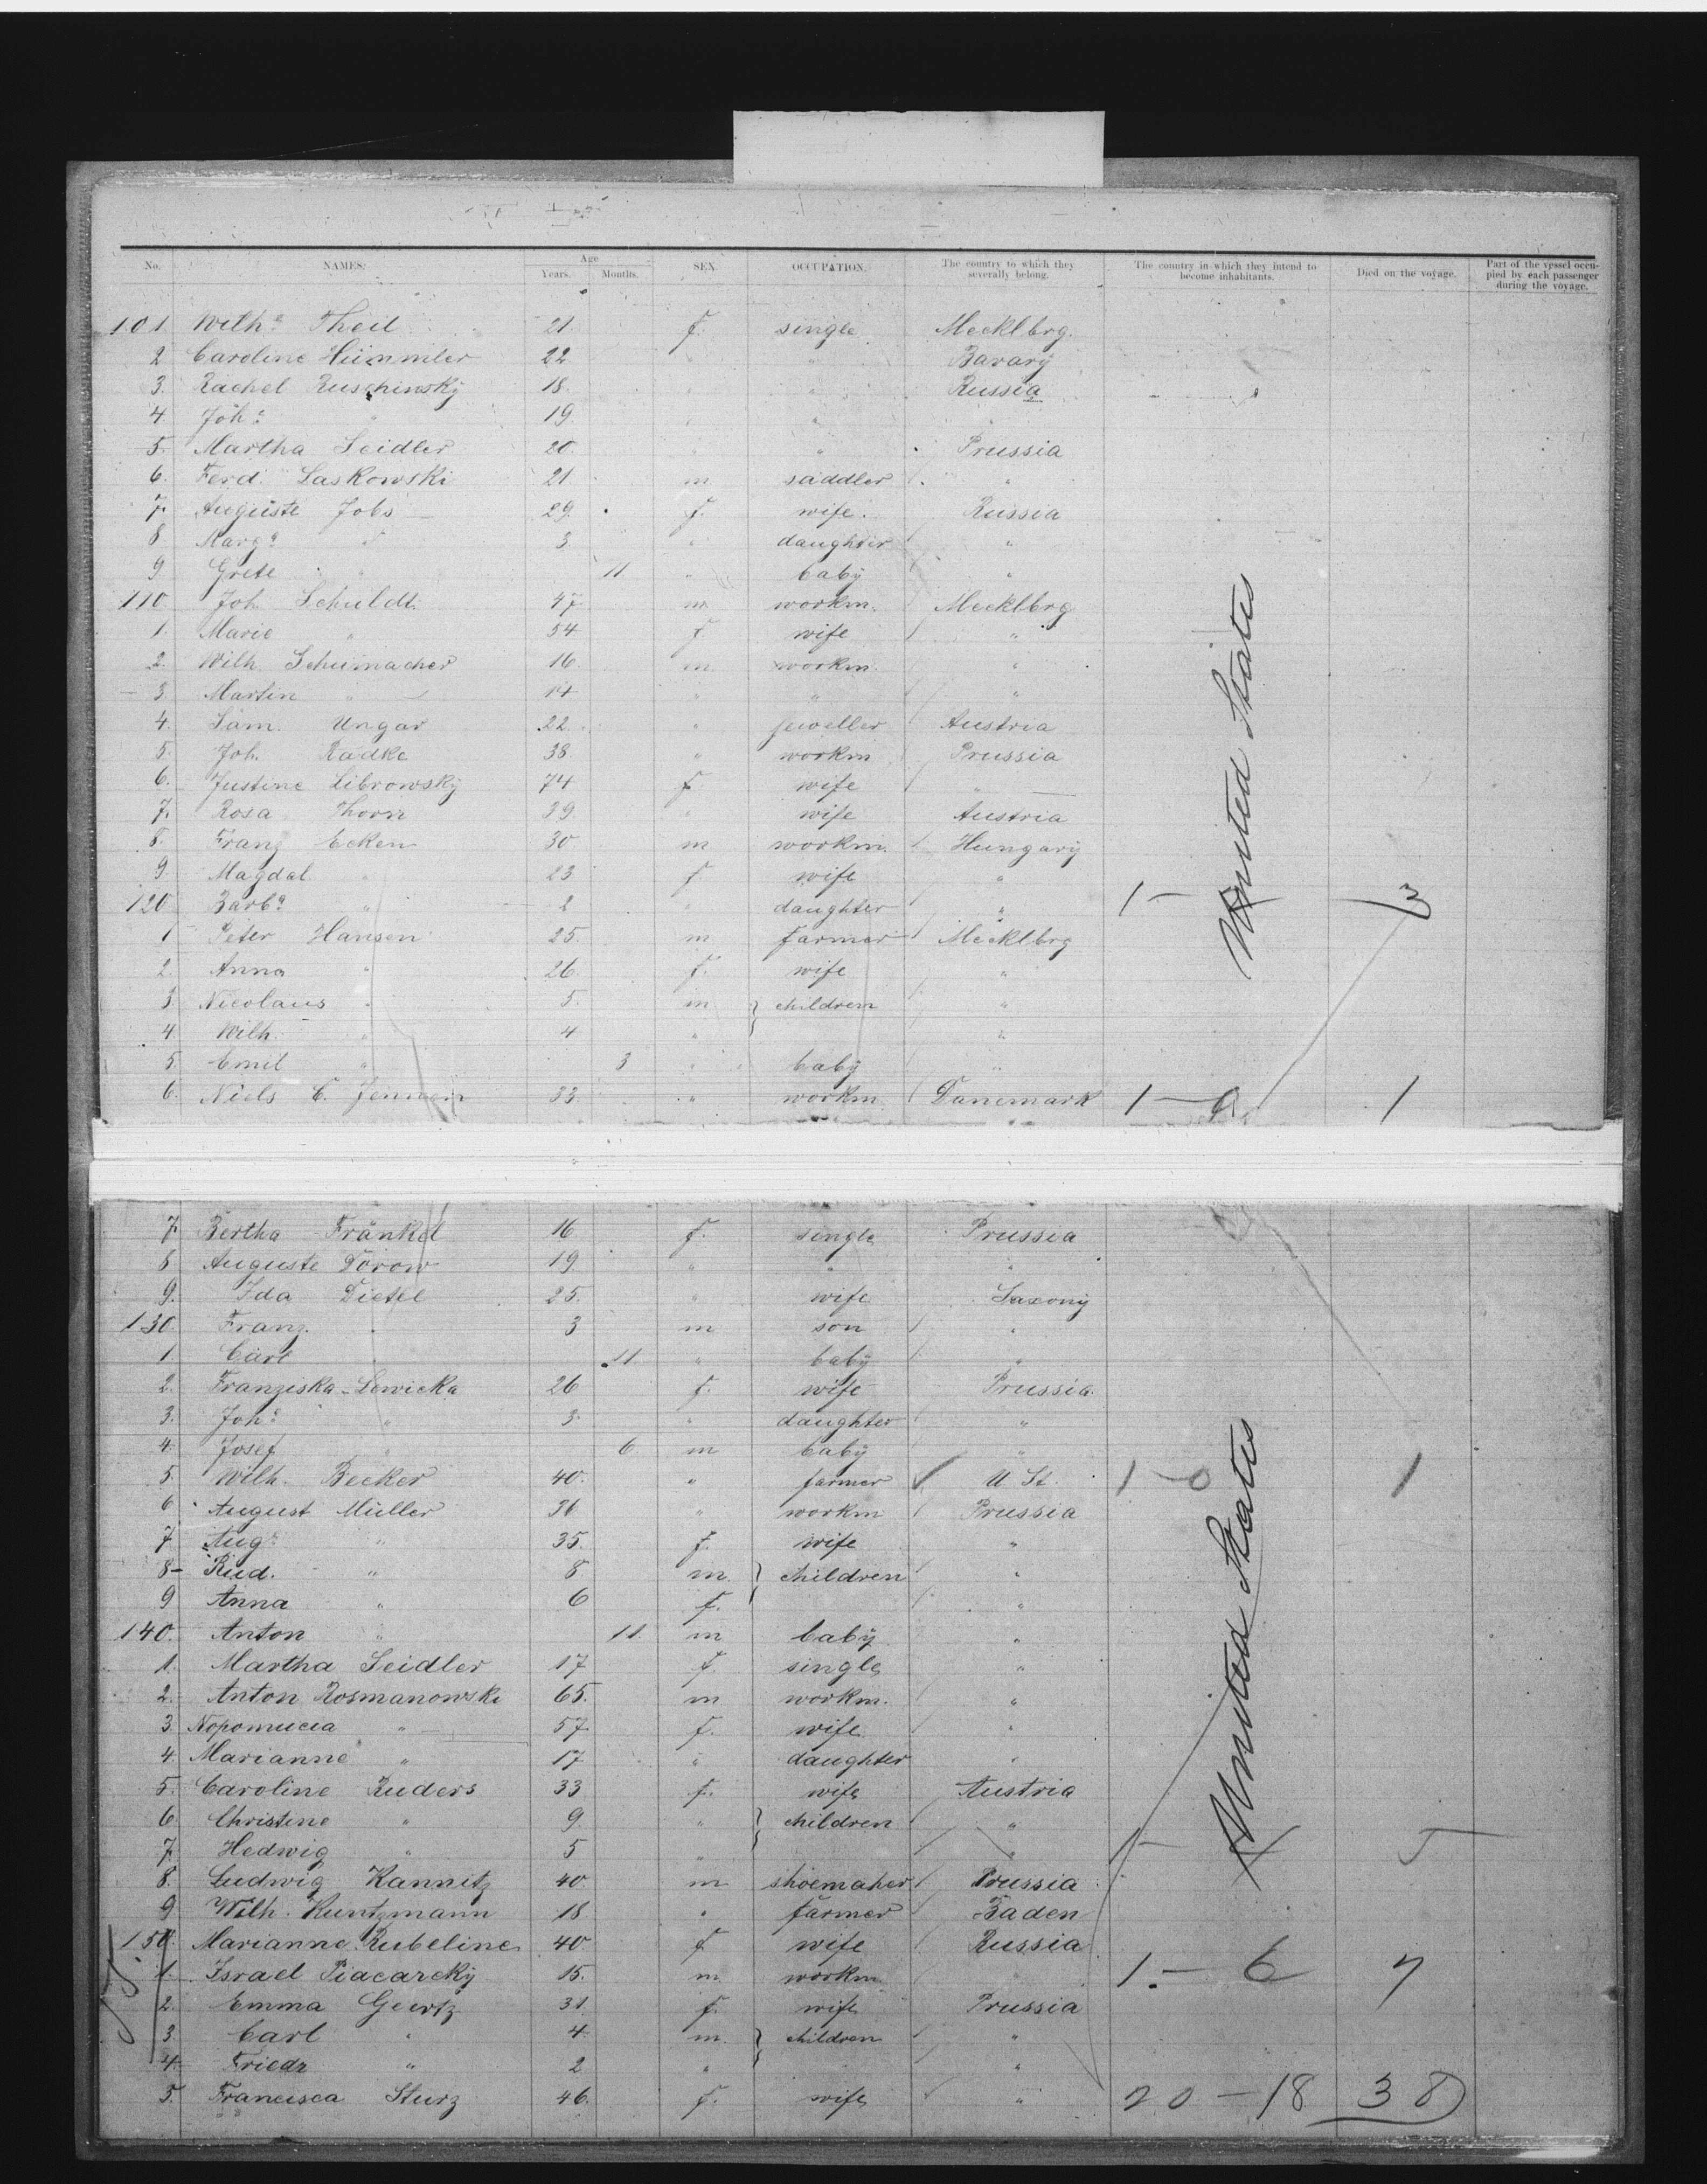 No. NAMES. Age Years. Months. SEX. OCCUPATION. The country to which they severally belong. The country in which they intend to become inhabitants. Died on the voyage. Part of the vessel occupied by each passenger during the voyage.
101 Wilhᵃ Theil 21 f. single Mecklbrg.
2 Caroline Hümmler 22 " " Bavary
3. Rachel Ruschinsky 18. " " Russia
4 Johᵃ " 19. " " "
5. Martha Seidler 20. " " Prussia
6. Ferd. Laskowski 21 m saddler "
7. Auguste Jobs 29. f. wife. Russia
8 Margᵃ " 3 " daughter "
9 Grete " 11 " baby "
110 Joh. Schuldt 47 m workm. Mecklbrg
1. Marie " 54 f wife "
2. Wilh. Schumacher 16. m workm. "
3. Martin " 14 " " "
4. Sam. Ungar 22 " jeweller Austria
5. Joh. Radke 38 " workm Prussia
6. Justine Librowsky 74 f wife "
7. Rosa Thorn 39. " wife Austria
8. Franz Ecken 30 m workm. Hungary
9. Magdal. " 23 f wife "
120 Barbᵃ " 2 " daughter " 1 — 3
1 Peter Hansen 25. m farmer Mecklbrg
2. Anna " 26. f. wife "
3 Nicolaus " 5. m } children "
4. Wilh. " 4 " "
5. Emil " 3 " baby "
6. Niels C. 33 " workm Danemark 1 — 0 1
United States
7. Bertha Fränkel 16 f. single Prussia
8 Auguste Dorow 19 " " "
9. Ida Dietel 25. " wife Saxony
130. Franz. " 3 m son "
1. Carl " 11 " baby "
2. Franziska Lewicka 26 f. wife Prussia
3. Johᵃ " 3 " daughter "
4. Josef " 6 m baby "
5. Wilh. Becker 40. " farmer U St. 1 — 0 1
6 August Müller 36 " workm Prussia
7. Augᵉ " 35. f. wife "
8 Rud. " 8 m. } children "
9 Anna " 6 f. "
140. Anton " 11. m baby "
1. Martha Seidler 17 f. single "
2. Anton Rosmanowski 65. m workm. "
3. Nopomucia " 57 f. wife "
4. Marianne " 17 " daughter "
5. Caroline Ruders 33 f. wife Austria
6 Christine " 9. " } children "
7. Hedwig " 5 " " 1 — 5
8. Ludwig Kannitz 40. m shoemaker Prussia
9 Wilh. Kuntzmann 18 " farmer Baden
150. Marianne Rubeline 40 f wife Russia
1. Israel Piacarcky 15. m workm. " 1. — 6 7
2. Emma Geertz 31 f. wife Prussia
3 Carl " 4 m. } children "
4. Friedr " 2 " "
5. Francisca Sturz 46. f. wife " 20 — 18 38
United States